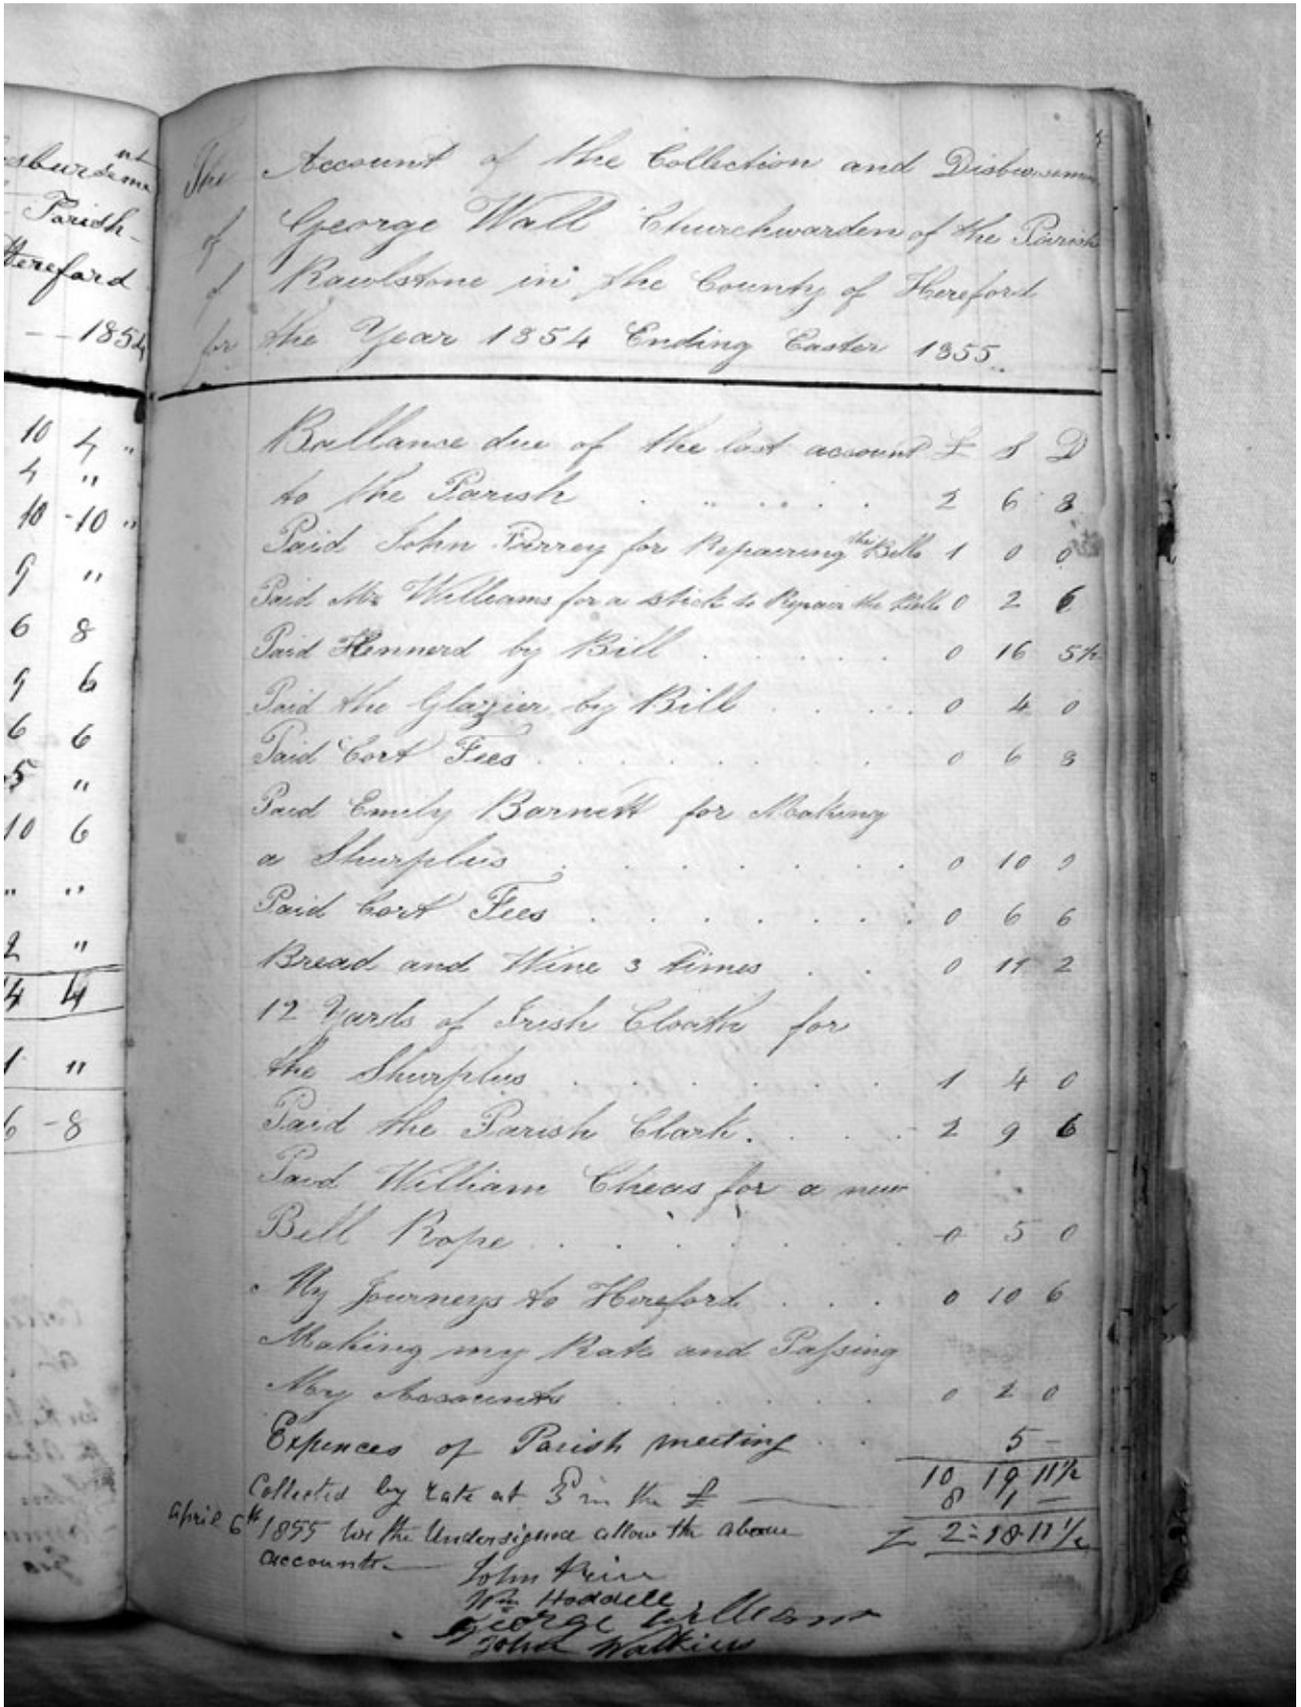 nt
sburseme
Parish
Hereford
1854
10 4 "
4 "
10 -10 "
9 "
6 8
9 6
6 6
5 "
10 6
" "
2 "
4 4
1 "
6 -8
The Account of the Collection and Disbursemen
of George Wall Churchwarden of the Parish
of Rowlstone in the County of Hereford
for the Year 1854 Ending Easter 1855
Ballance due of the last account £ S D
to the Parish . . . . . . 2 6 8
Paid John for Repairing the Bells 1 0 0
Paid Mr Williams for a stick to Repair the Bells 0 2 6
Paid Hennerd by Bill . . . . . 0 16 5½
Paid the Glazier by Bill . . . . 0 4 0
Paid Cort Fees . . . . . . . 0 6 8
Paid Emily Barnett for Making
a Shurplus . . . . . . . 0 10 0
Paid Cort Fees . . . . . . . 0 6 6
Bread and Wine 3 times . . 0 11 2
12 Yards of Irish Cloath for
the Shurplus . . . . . . 1 4 0
Paid the Parish Clark . . . . 2 9 6
Paid William Cheas for a new
Bell Rope . . . . . . 0 5 0
My Journeys to Hereford . . . 0 10 6
Making my Rate and Passing
My Accounts . . . . . . 0 2 0
Expences of Parish meeting . . 5 –
10 19 11½
Collected by rate at 3 in the £ — 8 1 —
April 6th 1855 We the Undersigned allow the above 2=18-11½
accounts
John
Wm Hoddell
George Williams
John Watkins